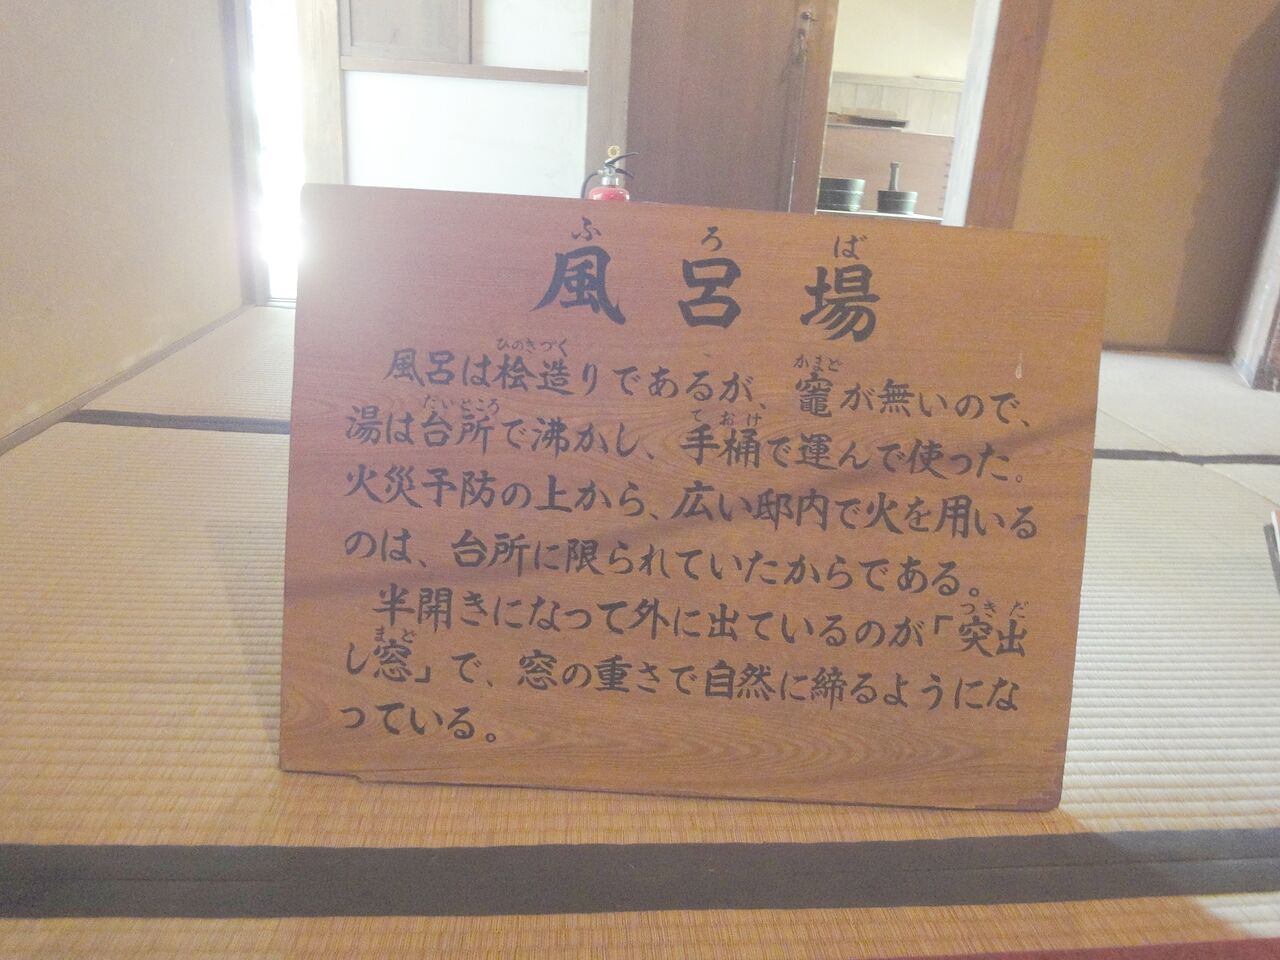 ふろば
風呂場
ひのきづく かまど
風呂は桧造りであるが、竈が無いので、
だいどころ ておけ
湯は台所で沸かし、手桶で運んで使った。
火災予防の上から、広い邸内で火を用いる
のは、台所に限られていたからである。
つきだ
半開きになって外に出ているのが「突出
まど
し窓」で、窓の重さで自然に締るようにな
っている。